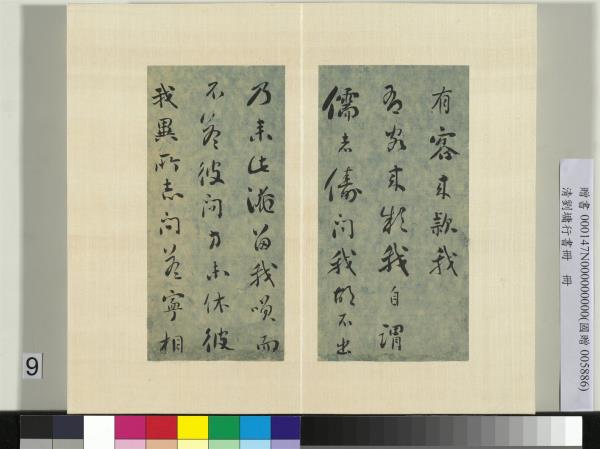 有客來款我
有客來款我自謂
儒者儔問我胡不出
乃來此淹留我嘆而
不答彼問方未休彼
我異所志問答寧相
贈書 000147N000000000(國贈 005886)
清劉墉行書冊 冊
9